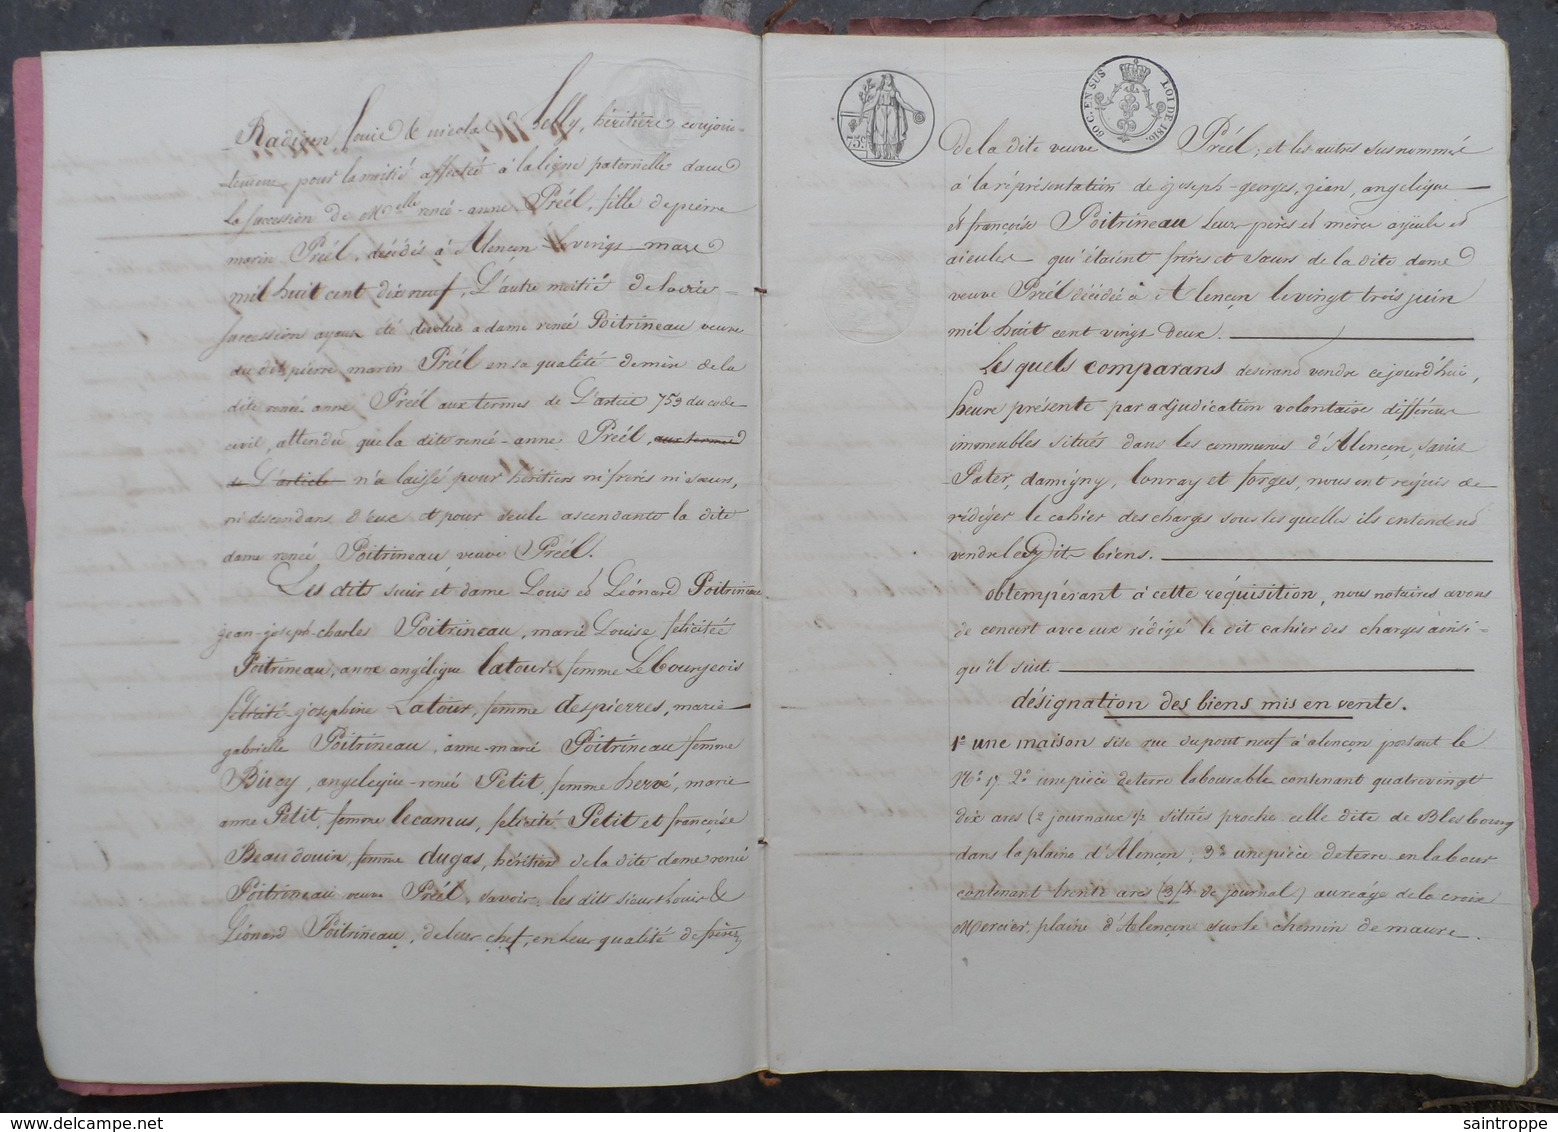 Radiguer, Louis & nicolas Selly, héritière conjoin-
tement pour la moitié affectée à la ligne paternelle dans
la succession de Melle renée-anne Préél, fille de pierre
marin Préél, décédée à Alençon le vingt mars
mil huit cent dix neuf, L'autre moitié de la die
succession ayant été dévolue a dame renée Poitrineau veuve
du dit pierre marin Préél en sa qualité de mère de la
dite renée anne Préél aux termes de L'article 753 du code
civil, attendu que la dite renée-anne Préél, aux termes
de L'article n'a laissé pour héritiers ni frères ni sœurs,
ni descendans d'eux et pour seule ascendante la dite
dame renée Poitrineau veuve Préél.
Les dits sieur et dame Louis et Léonard Poitrineau
jean-joseph-charles Poitrineau, marie Louise félicitée
Poitrineau, anne angélique latour femme Le bourgeois
félicité-josephine Latour, femme despierres, marie
gabrielle Poitrineau, anne-marie Poitrineau femme
Bivoy, angelique-renée Petit, femme hervé, marie
anne Petit, femme lecamus, félicité Petit et françoise
Beaudouin, femme dugas, héritiers de la dite dame renée
Poitrineau veuve Préél, savoir, les dits sieurs Louis &
Léonard Poitrineau, de leur chef, en leur qualité de frères
75c
60 C. EN SUS LOI DE 1816.
de la dite veuve Préél; et les autres susnommés
à la réprésentation de joseph-georges, jean, angelique
et françoise Poitrineau leurs pères et mères ayeule et
aieules qui étaient frères et sœurs de la dite dame
veuve Préél décédée à Alençon le vingt trois juin
mil huit cent vingt deux.
Les quels comparans desirant vendre cejourd'hui,
heure présente par adjudication volontaire différens
immeubles situés dans les communes d'Alençon, saint
Pater, damigny, lonray et forges, nous ont requis de
rédiger le cahier des charges sous les quelles ils entendent
vendre les dits biens.
obtempérant à cette réquisition, nous notaires avons
de concert avec eux rédigé le dit cahier des charges ainsi-
qu'il suit
désignation des biens mis en vente.
1º une maison sise rue du pont neuf à alençon portant le
Nº 17. 2º une pièce de terre labourable contenant quatre vingt
dix ares (2 journaux ½ situés proche celle dite de Blesbourg
dans la plaine d'Alençon; 3º une pièce de terre en labour
contenant trente ares (3/4 de journal) au réage de la croix
Mercier, plaine d'Alençon sur le chemin de maure.
saintroppe